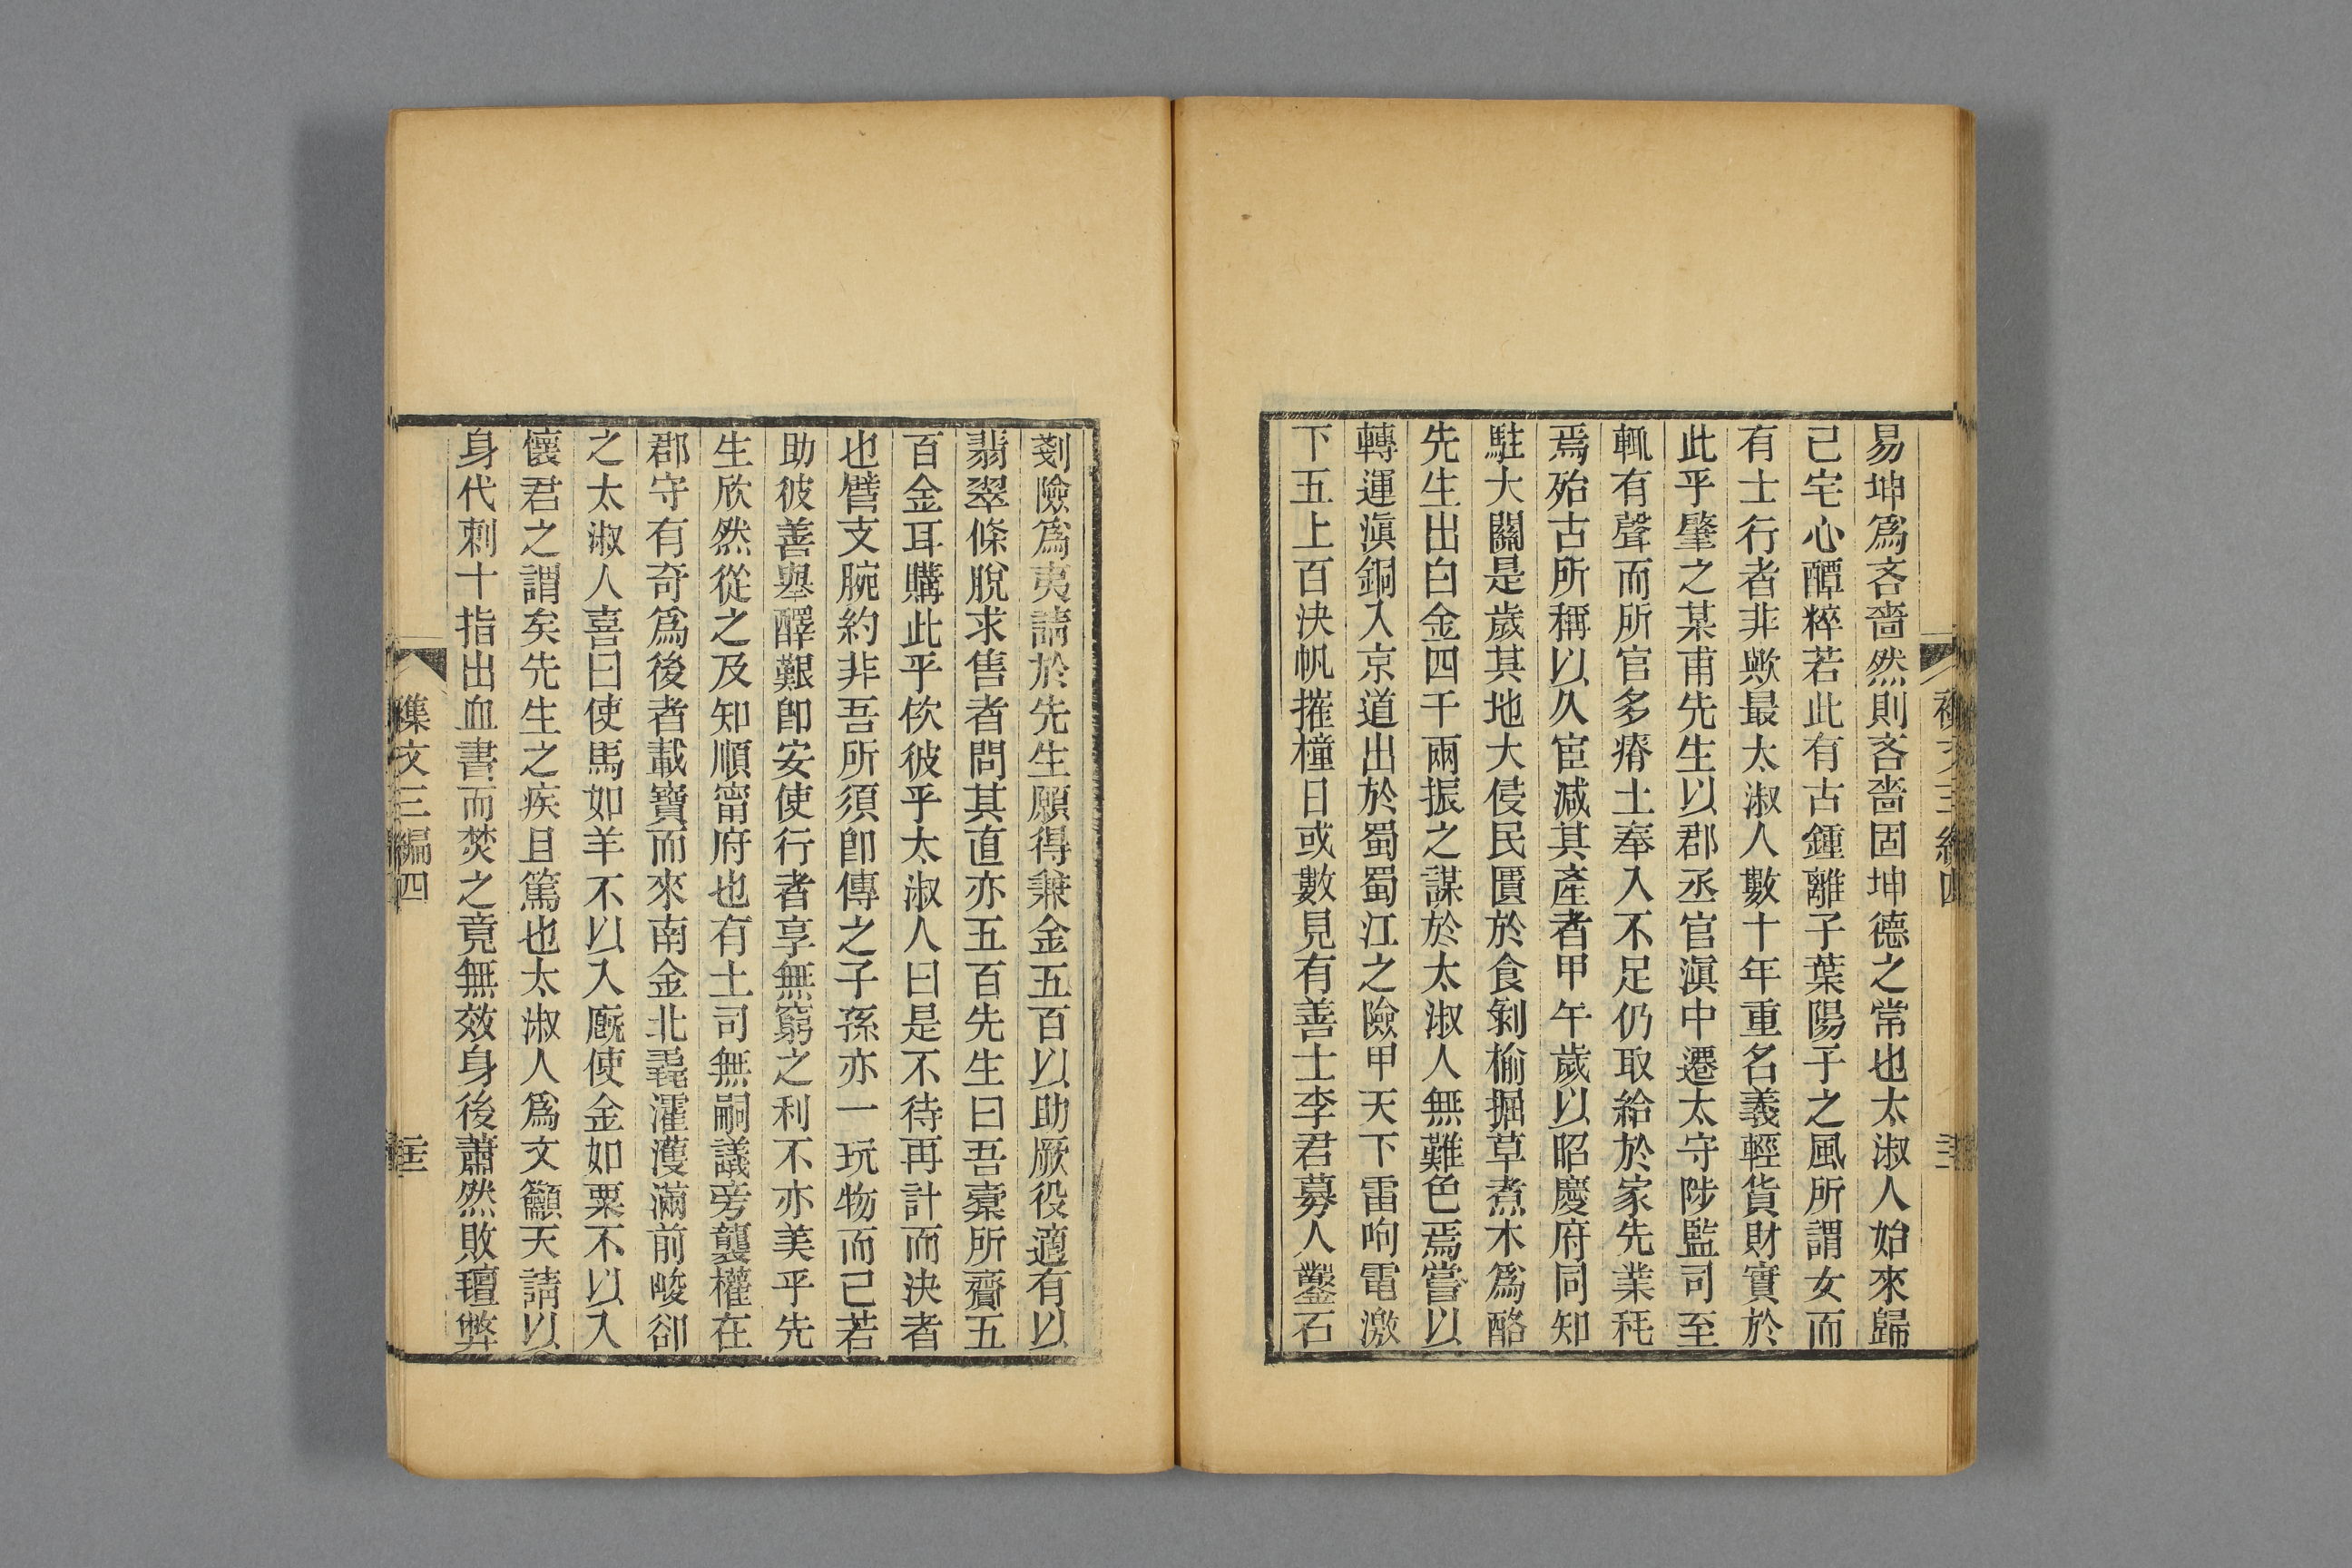 易坤爲吝嗇然則吝嗇固坤德之常也太淑人始來歸
己宅心醰粹若此有古鍾離子葉陽子之風所謂女而
有士行者非歟最太淑人數十年重名義輕貨財實於
此乎肇之某甫先生以郡丞官滇中遷太守陟監司至
輒有聲而所官多瘠土奉入不足仍取給於家先業秏
焉殆古所稱以久宦減其產者甲午歲以昭慶府同知
駐大關是歲其地大侵民匱於食剝榆掘草煮木爲酪
先生出白金四千兩振之謀於太淑人無難色焉嘗以
轉運滇銅入京道出於蜀蜀江之險甲天下雷呴電激
下五上百決帆摧橦日或數見有善士李君募人鑿石
剗險爲夷請於先生願得兼金五百以助厥役適有以
翡翠條脫求售者問其直亦五百先生曰吾橐所齎五
百金耳購此乎佽彼乎太淑人曰是不待再計而決者
也臂支腕約非吾所須卽傳之子孫亦一玩物而已若
助彼善舉醳艱卽安使行者享無窮之利不亦美乎先
生欣然從之及知順甯府也有土司無嗣議旁襲權在
郡守有奇爲後者載寶而來南金北毳濯濩滿前峻卻
之太淑人喜曰使馬如羊不以入廐使金如粟不以入
懷君之謂矣先生之疾且篤也太淑人爲文籲天請以
身代刺十指出血書而焚之竟無效身後蕭然敗氊弊
襍文三編四